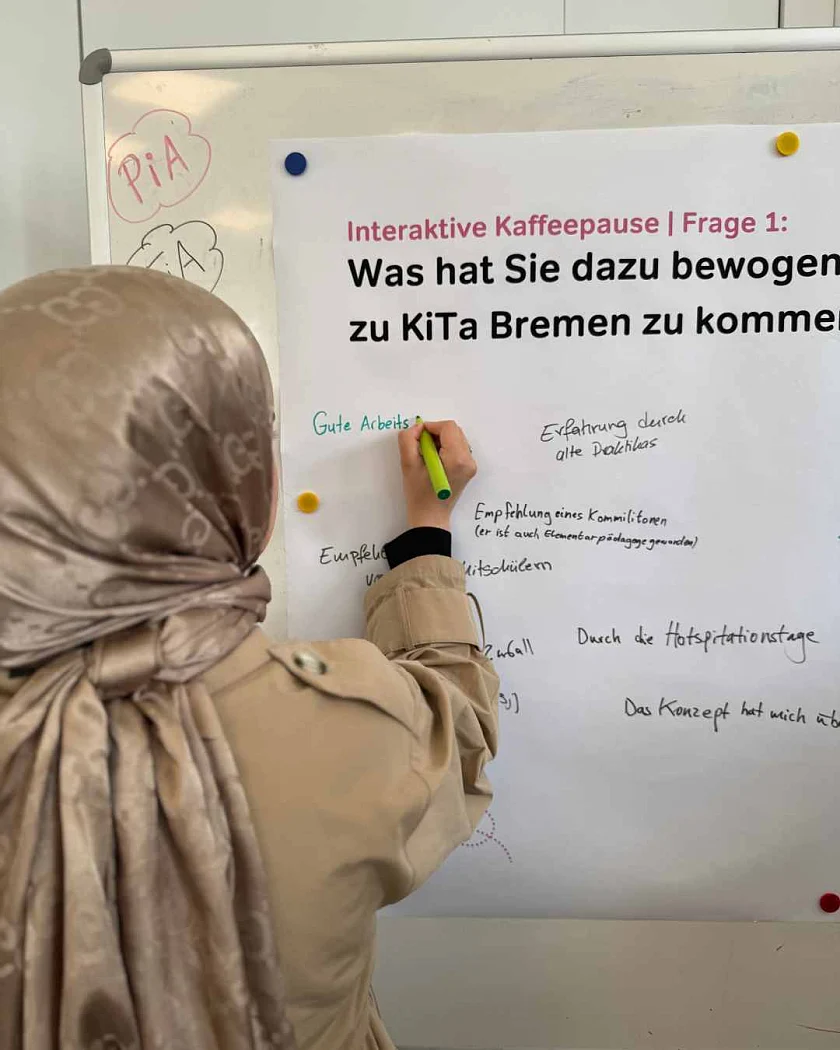 PiA
Interaktive Kaffeepause | Frage 1:
Was hat Sie dazu bewogen
zu KiTa Bremen zu komme
Gute Arbeits
Erfahrung durch
alte Praktikas
Empfehlung eines Kommilitonen
(er ist auch Elementarpädagoge geworden)
Empfehl
mitschülern
Zufall
Durch die Hotspitationstage
Das Konzept hat mich üb